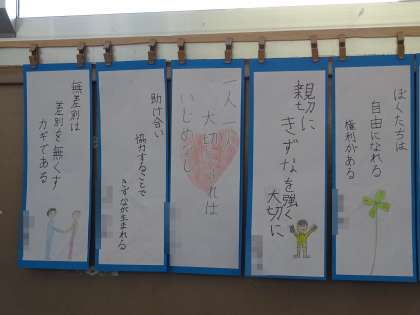 ぼくたちは
自由になれる
権利がある
親切に
きずなを強く
大切に
一人一人
大切にすれば
いじめなし
助け合い
協力することで
きずなが生まれる
無差別は
差別を無くす
カギである